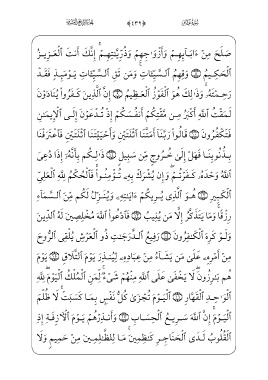 صَلَحَ مِنْ ءَابَآئِهِمْ وَأَزْوَٰجِهِمْ وَذُرِّيَّٰتِهِمْ إِنَّكَ أَنتَ ٱلْعَزِيزُ
ٱلْحَكِيمُ وَقِهِمُ ٱلسَّيِّـَٔاتِ وَمَن تَقِ ٱلسَّيِّـَٔاتِ يَوْمَئِذٍ فَقَدْ
رَحِمْتَهُۥ وَذَٰلِكَ هُوَ ٱلْفَوْزُ ٱلْعَظِيمُ إِنَّ ٱلَّذِينَ كَفَرُوا۟ يُنَادَوْنَ
لَمَقْتُ ٱللَّهِ أَكْبَرُ مِن مَّقْتِكُمْ أَنفُسَكُمْ إِذْ تُدْعَوْنَ إِلَى ٱلْإِيمَٰنِ
فَتَكْفُرُونَ قَالُوا۟ رَبَّنَآ أَمَتَّنَا ٱثْنَتَيْنِ وَأَحْيَيْتَنَا ٱثْنَتَيْنِ فَٱعْتَرَفْنَا
بِذُنُوبِنَا فَهَلْ إِلَىٰ خُرُوجٍ مِّن سَبِيلٍ ذَٰلِكُم بِأَنَّهُۥٓ إِذَا دُعِىَ
ٱللَّهُ وَحْدَهُۥ كَفَرْتُمْ وَإِن يُشْرَكْ بِهِۦ تُؤْمِنُوا۟ فَٱلْحُكْمُ لِلَّهِ ٱلْعَلِىِّ
ٱلْكَبِيرِ هُوَ ٱلَّذِى يُرِيكُمْ ءَايَٰتِهِۦ وَيُنَزِّلُ لَكُم مِّنَ ٱلسَّمَآءِ
رِزْقًا وَمَا يَتَذَكَّرُ إِلَّا مَن يُنِيبُ فَٱدْعُوا۟ ٱللَّهَ مُخْلِصِينَ لَهُ ٱلدِّينَ
وَلَوْ كَرِهَ ٱلْكَٰفِرُونَ رَفِيعُ ٱلدَّرَجَٰتِ ذُو ٱلْعَرْشِ يُلْقِى ٱلرُّوحَ
مِنْ أَمْرِهِۦ عَلَىٰ مَن يَشَآءُ مِنْ عِبَادِهِۦ لِيُنذِرَ يَوْمَ ٱلتَّلَاقِ يَوْمَ
هُم بَٰرِزُونَ لَا يَخْفَىٰ عَلَى ٱللَّهِ مِنْهُمْ شَىْءٌ لِّمَنِ ٱلْمُلْكُ ٱلْيَوْمَ لِلَّهِ
ٱلْوَٰحِدِ ٱلْقَهَّارِ ٱلْيَوْمَ تُجْزَىٰ كُلُّ نَفْسٍۭ بِمَا كَسَبَتْ لَا ظُلْمَ
ٱلْيَوْمَ إِنَّ ٱللَّهَ سَرِيعُ ٱلْحِسَابِ وَأَنذِرْهُمْ يَوْمَ ٱلْـَٔازِفَةِ إِذِ
ٱلْقُلُوبُ لَدَى ٱلْحَنَاجِرِ كَٰظِمِينَ مَا لِلظَّٰلِمِينَ مِنْ حَمِيمٍ وَلَا